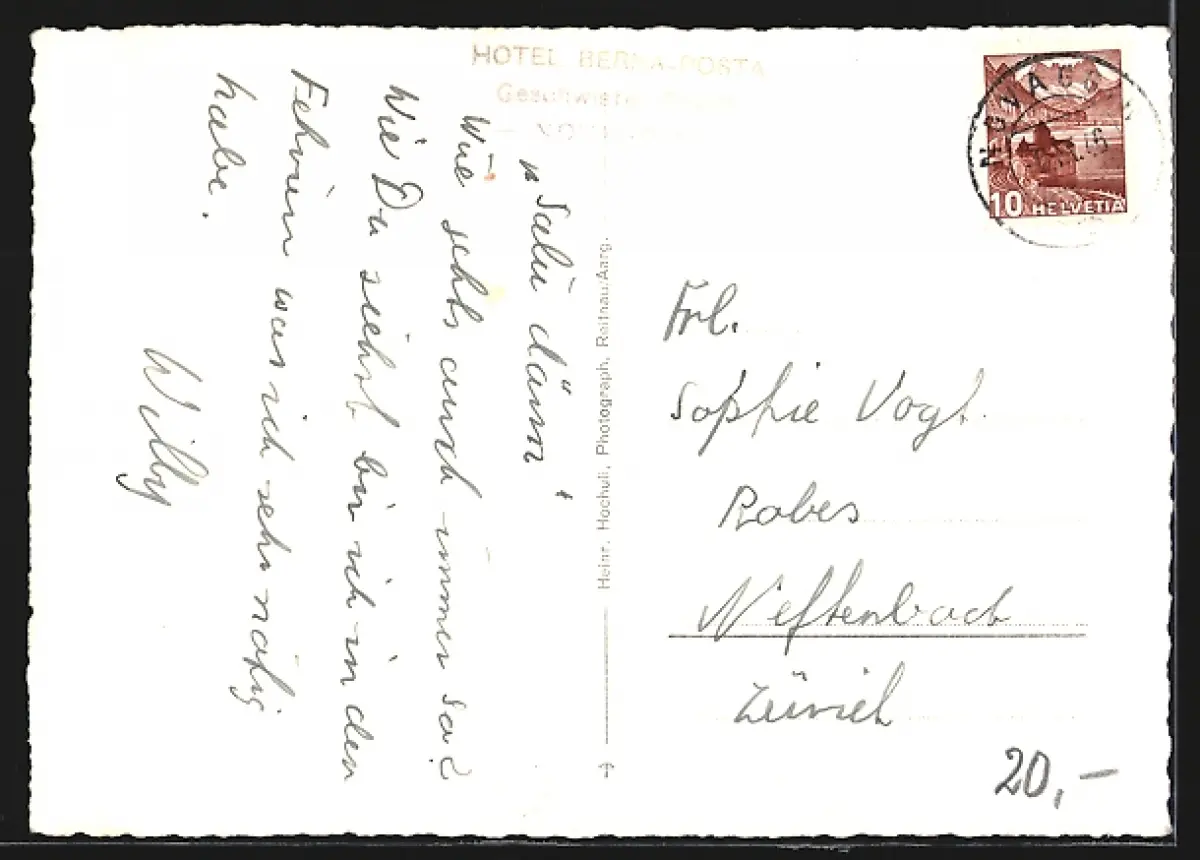 HOTEL BERNA-POSTA
Geschwister
„Salü dänn"
Wie gehts auch immer so?
Wie Du siehst bin ich in den
Fehrien was ich sehr nötig
habe.
Willy
Heinr. Hochuli, Photograph, Reitnau/Aarg.
10 HELVETIA
Frl.
Sophie Vogt.
Robes
Neftenbach
Zürich
20,-